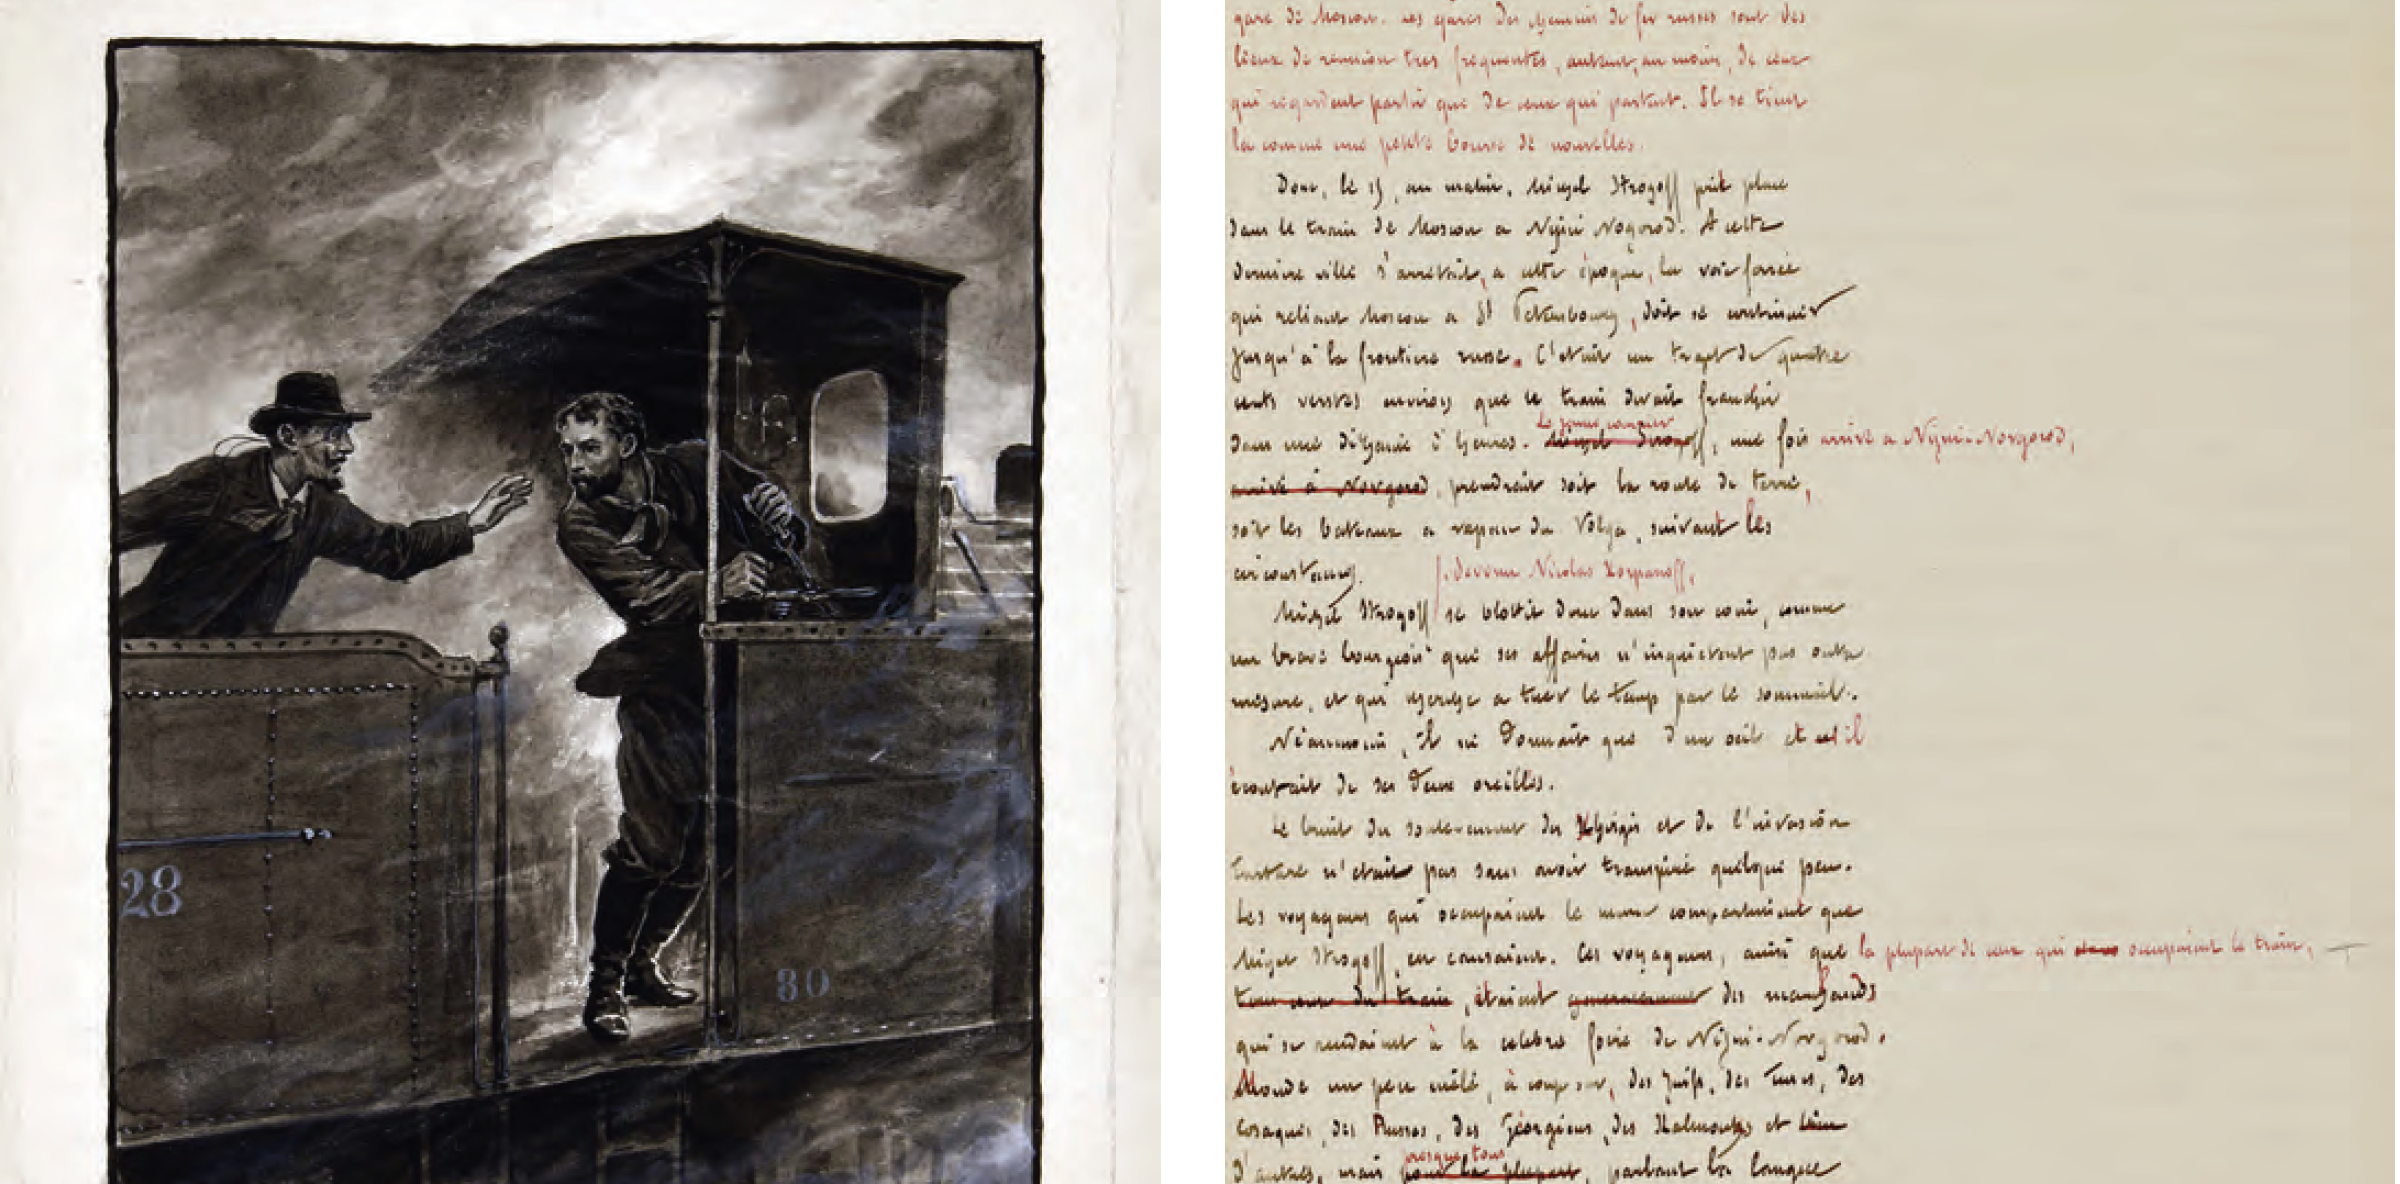 28
80
gare de Moscou. Les gares des chemins de fer russes sont des
lieux de réunion très fréquentés, autant, au moins, de ceux
qui regardent partir que de ceux qui partent. Il se tient
là comme une petite bourse de nouvelles.
Donc, le 15, au matin, Michel Strogoff prit place
dans le train de Moscou a Nijni Nogorod. A cette
dernière ville s'arrêtait, a cette époque, la voie ferrée
qui reliant Moscou a St Petersbourg, doit se continuer
jusqu'à la frontière russe. C'était un trajet de quatre
cents verstes environ que le train devait franchir
Le jeune courrier
dans une dizaine d'heures. Michel Strogoff, une fois arrivé a Nijni-Novgorod,
arrivé à Novgorod, prendrait soit la route de terre,
soit les bateaux a vapeur du Volga, suivant les
circonstances.
, devenu Nicolas Korpanoff,
Michel Strogoff se blottit donc dans son coin, comme
un brave bourgeois que ses affaires n'inquiètent pas outre
mesure, et qui cherche a tuer le temps par le sommeil.
Néanmoins, il ne dormait que d'un oeil et il
écoutait de ses deux oreilles.
Le bruit du soulèvement des Khirgis et de l'invasion
tartare n'était pas sans avoir transpiré quelque peu.
Les voyageurs qui occupaient le même compartiment que
Michel Strogoff, en causaient. Ces voyageurs, ainsi que la plupart de ceux qui occupaient le train,
tous ceux du train, étaient généralement des marchands
qui se rendaient à la célèbre foire de Nijni-Novgorod.
Monde un peu mêlé, à coup sûr, des Juifs, des Turcs, des
Cosaques, des Russes, des Géorgiens, des Kalmouks et bien
presque tous
d'autres, mais pour la plupart, parlant la langue